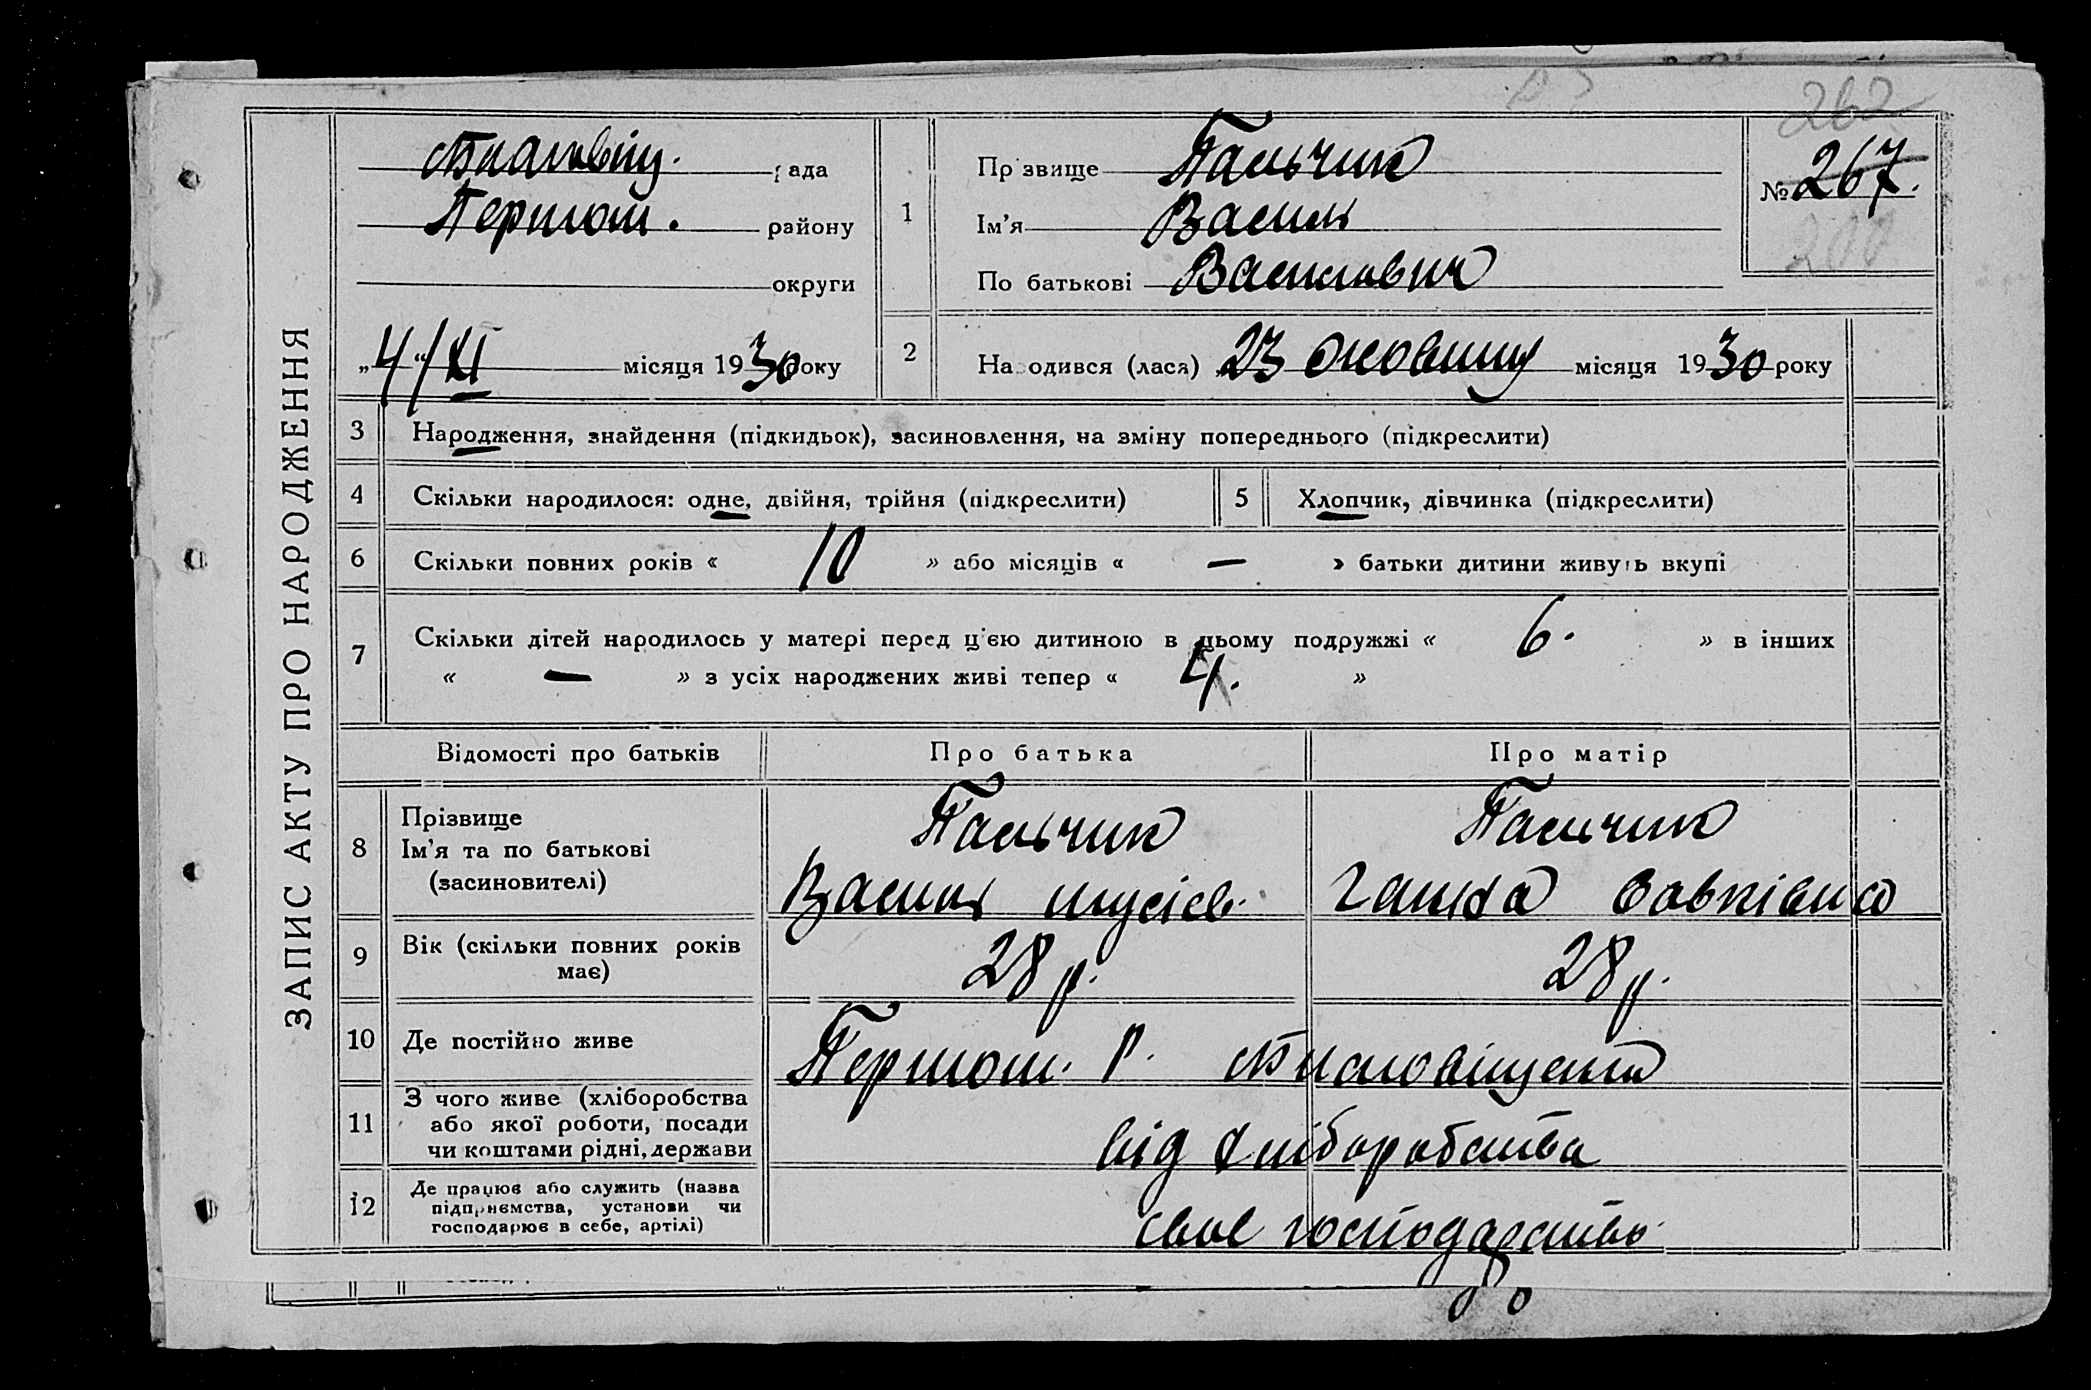 ЗАПИС АКТУ ПРО НАРОДЖЕННЯ
Благовіщ. рада
Першом. району
округи
„4“/XI місяця 1930 року
1
Прізвище Пальчик
Ім’я Василь
По батькові Васильович
262
№ 267.
200
2
Народився (лася) 23 жовтня місяця 1930 року
3 Народження, знайдення (підкидьок), засиновлення, на зміну попереднього (підкреслити)
4 Скільки народилося: одне, двійня, трійня (підкреслити)
5 Хлопчик, дівчинка (підкреслити)
6 Скільки повних років « 10 » або місяців « — » батьки дитини живуть вкупі
7 Скільки дітей народилось у матері перед ц'єю дитиною в цьому подружжі « 6. » в інших
« — » з усіх народжених живі тепер « 4. »
Відомості про батьків Про батька Про матір
8 Прізвище
Ім’я та по батькові
(засиновителі)
Пальчик
Василь мусієв.
Пальчик
Ганна
9 Вік (скільки повних років
має)
28 р. 28 р.
10 Де постійно живе Першом. Р. Благовіщенка
11 З чого живе (хліборобства
або якої роботи, посади
чи коштами рідні, держави
від хліборобства
12 Де працює або служить (назва
підприємства, установи чи
господарює в себе, артілі)
своє господарство